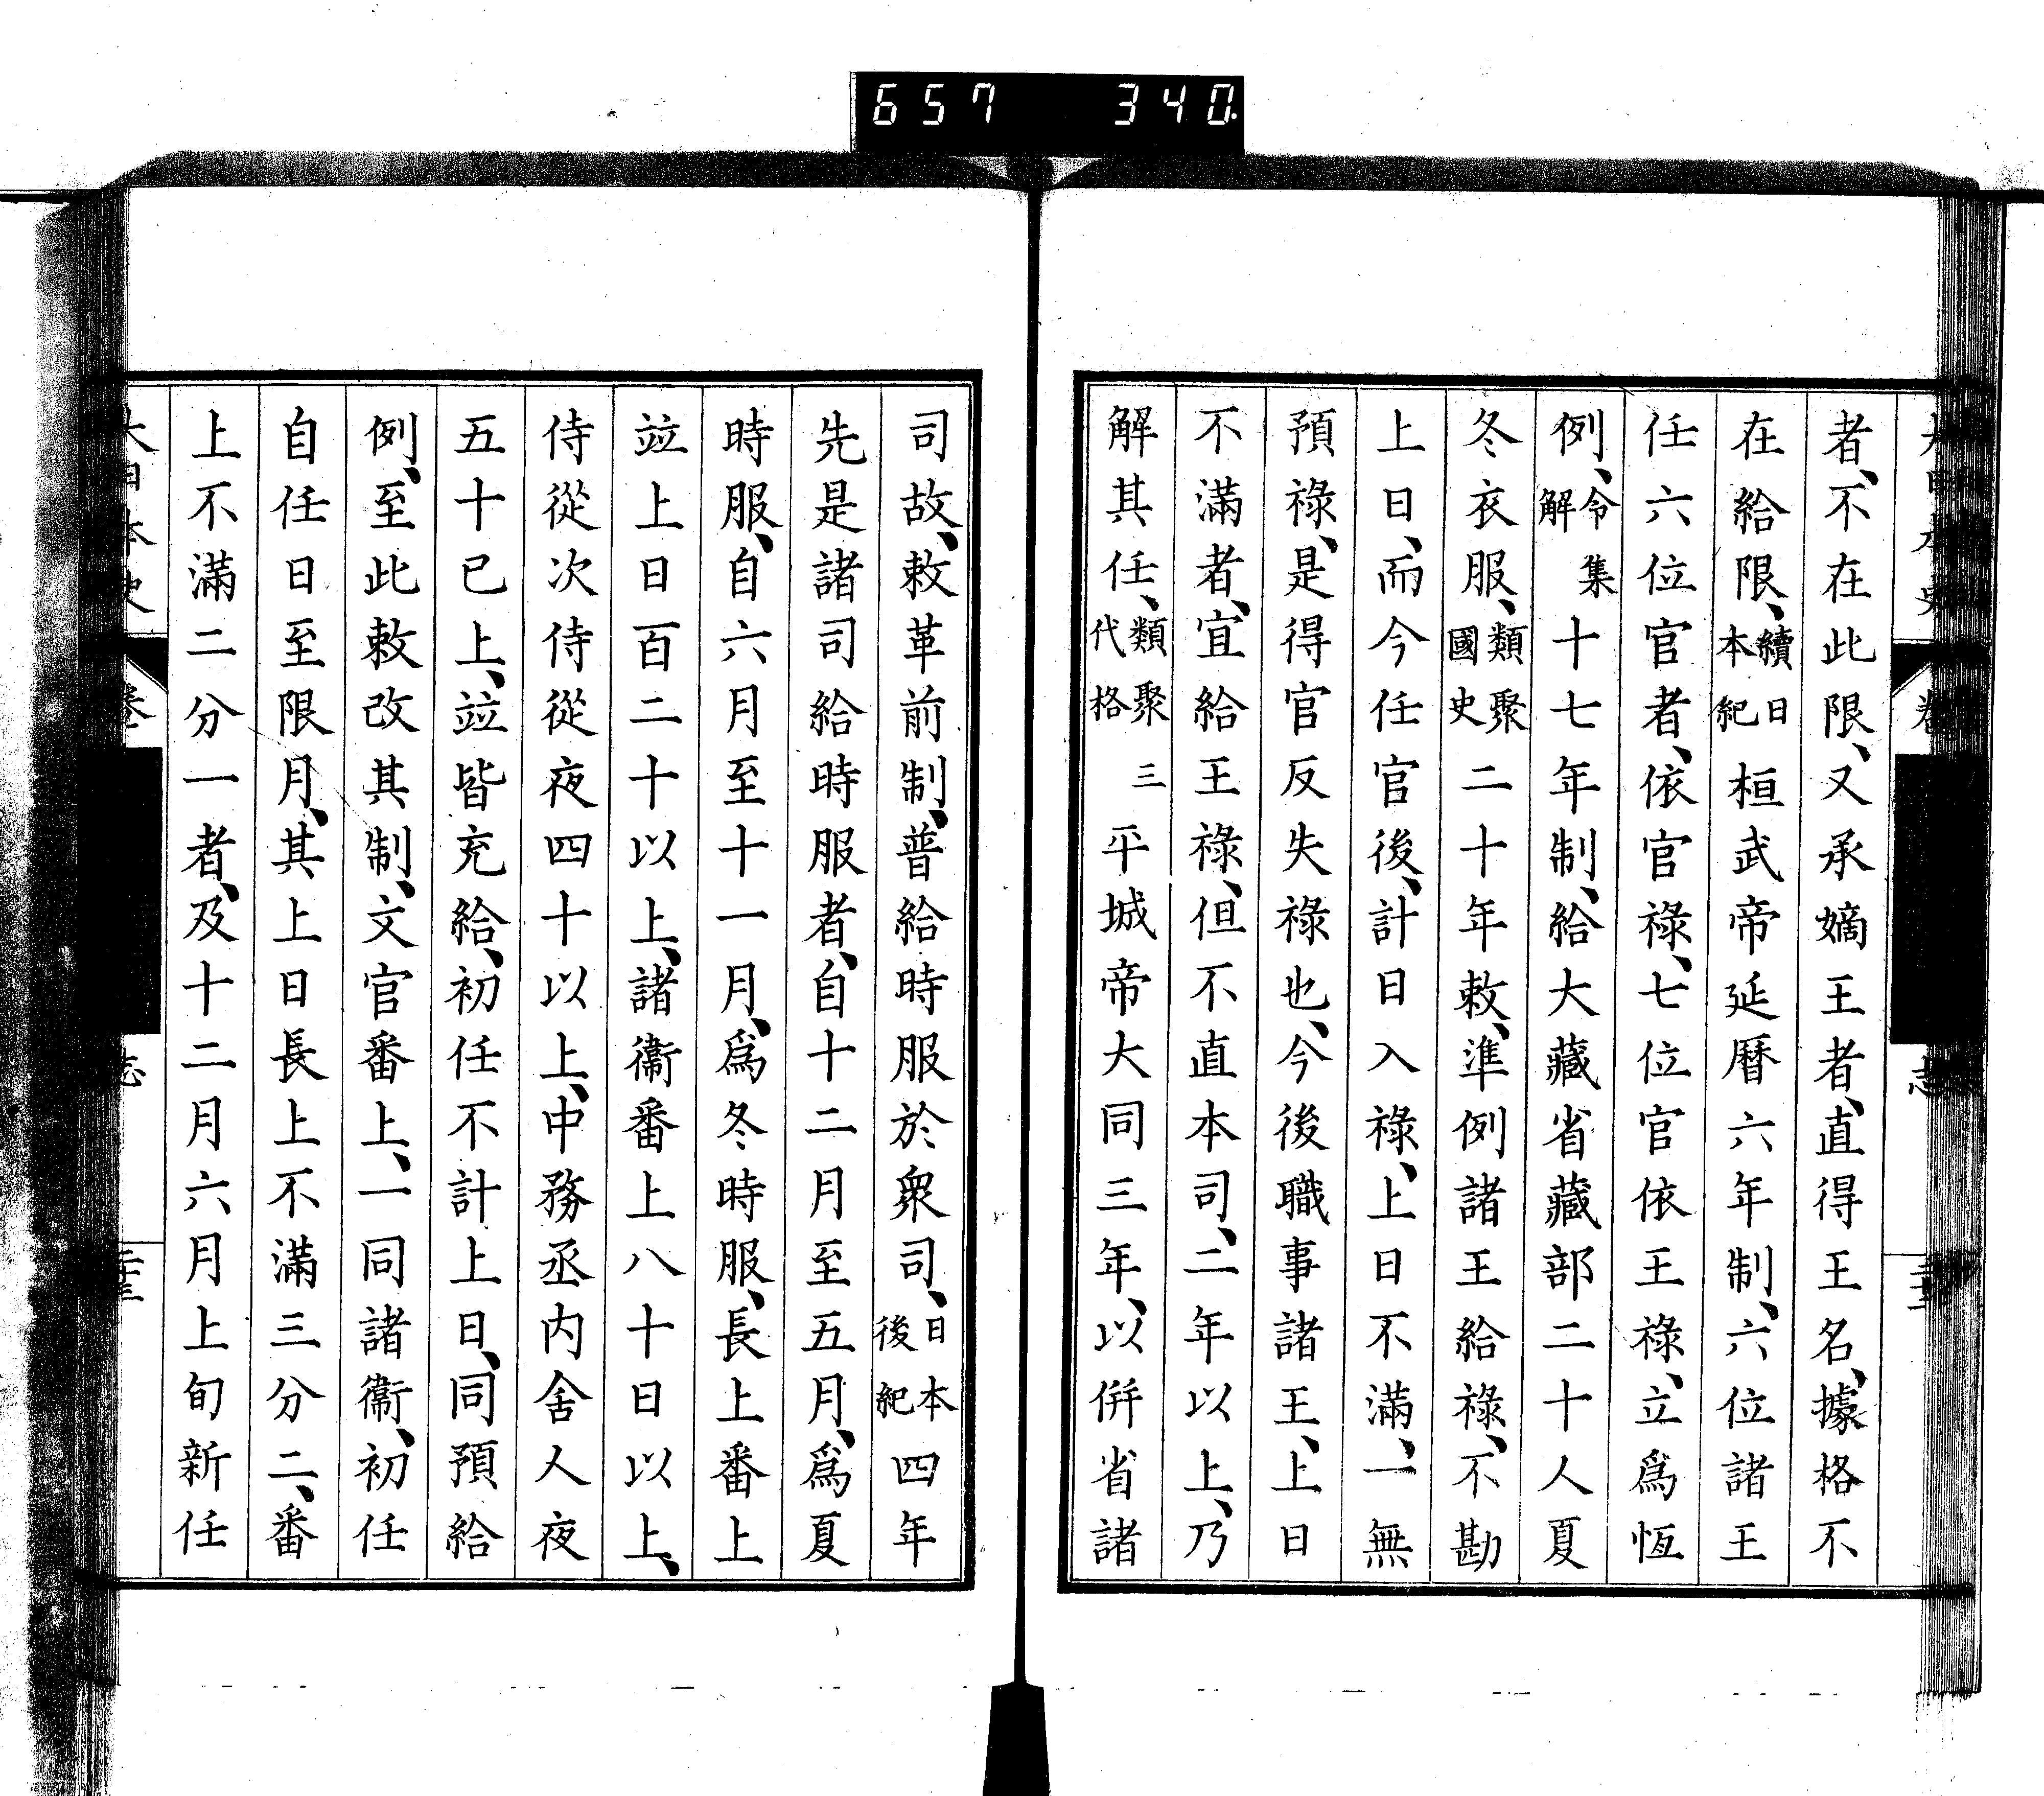 657 340
大日本史 卷 志
者、不在此限、又承嫡王者、直得王名、據格不
在給限、續日本紀桓武帝延曆六年制、六位諸王
任六位官者、依官祿、七位官依王祿、立爲恆
例、令集解十七年制、給大藏省藏部二十人夏
冬衣服、類聚國史二十年敕、準例諸王給祿、不勘
上日、而今任官後、計日入祿、上日不滿、一無
預祿、是得官反失祿也、今後職事諸王、上日
不滿者、宜給王祿、但不直本司、二年以上、乃
解其任、類聚三代格平城帝大同三年、以併省諸
司故、敕革前制、普給時服於衆司、日本後紀四年
先是諸司給時服者、自十二月至五月、爲夏
時服、自六月至十一月、爲冬時服、長上番上
竝上日百二十以上、諸衞番上八十日以上、
侍從次侍從夜四十以上、中務丞內舍人夜
五十已上、竝皆充給、初任不計上日、同預給
例、至此敕改其制、文官番上、一同諸衞、初任
自任日至限月、其上日長上不滿三分二、番
上不滿二分一者、及十二月六月上旬新任
大日本史 卷 志